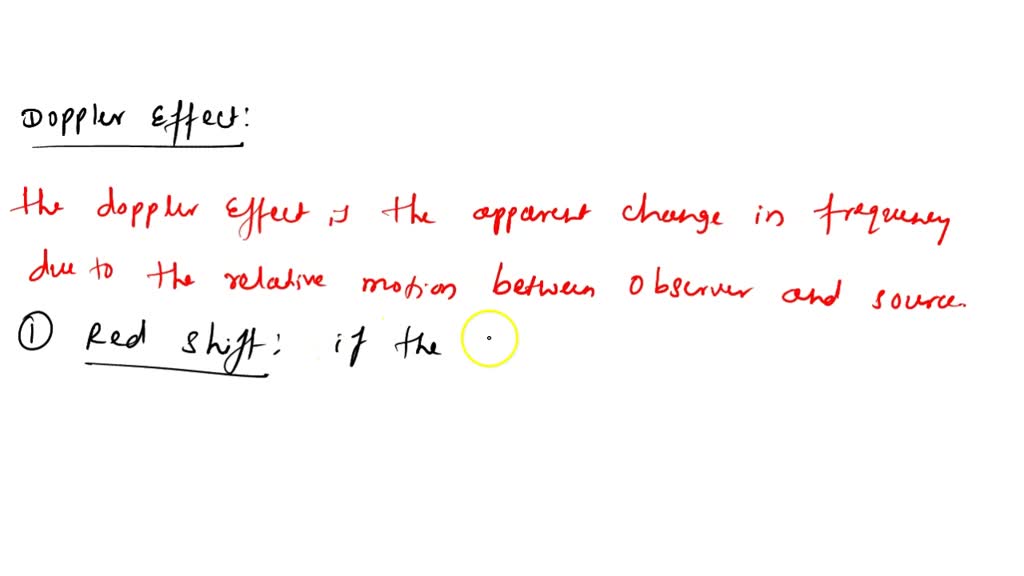 Doppler Effect:
the doppler Effect is the apparent change in frequency
due to the relative motion between Observer and source.
① Red shift: if the